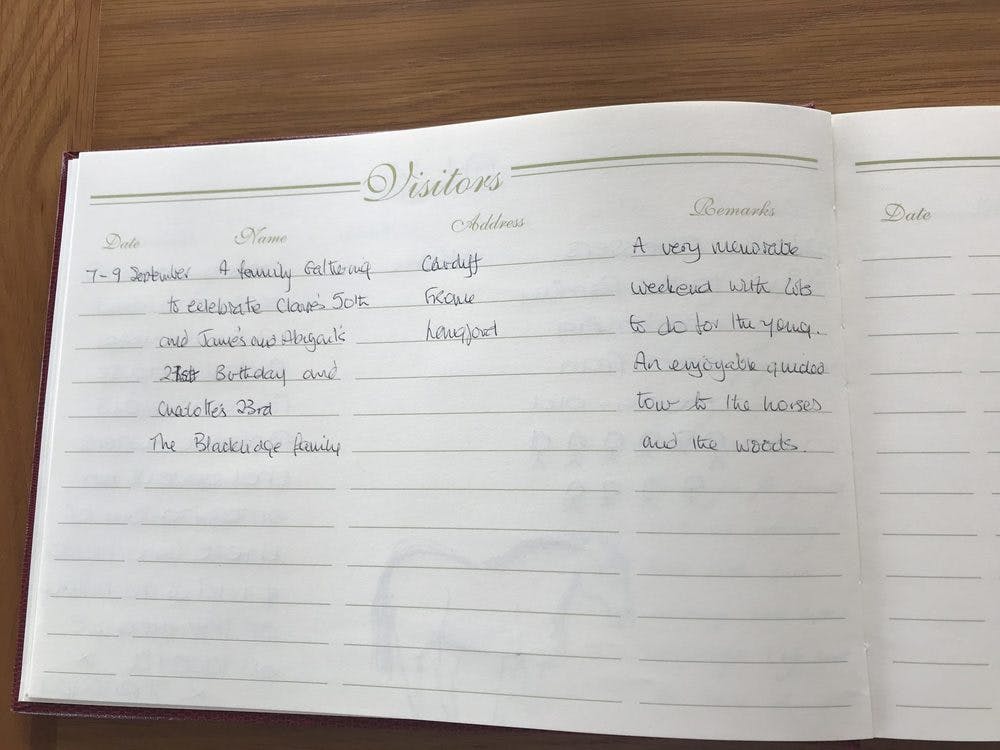 Visitors
Date Name Address Remarks Date
7-9 September A family Gathering Cardiff A very memorable
to celebrate Claire's 50th Frome weekend with lots
and James's and Abigail's Longford to do for the young.
21st Birthday and An enjoyable guided
Charlotte's 23rd tour to the horses
The Blacklidge family and the woods.